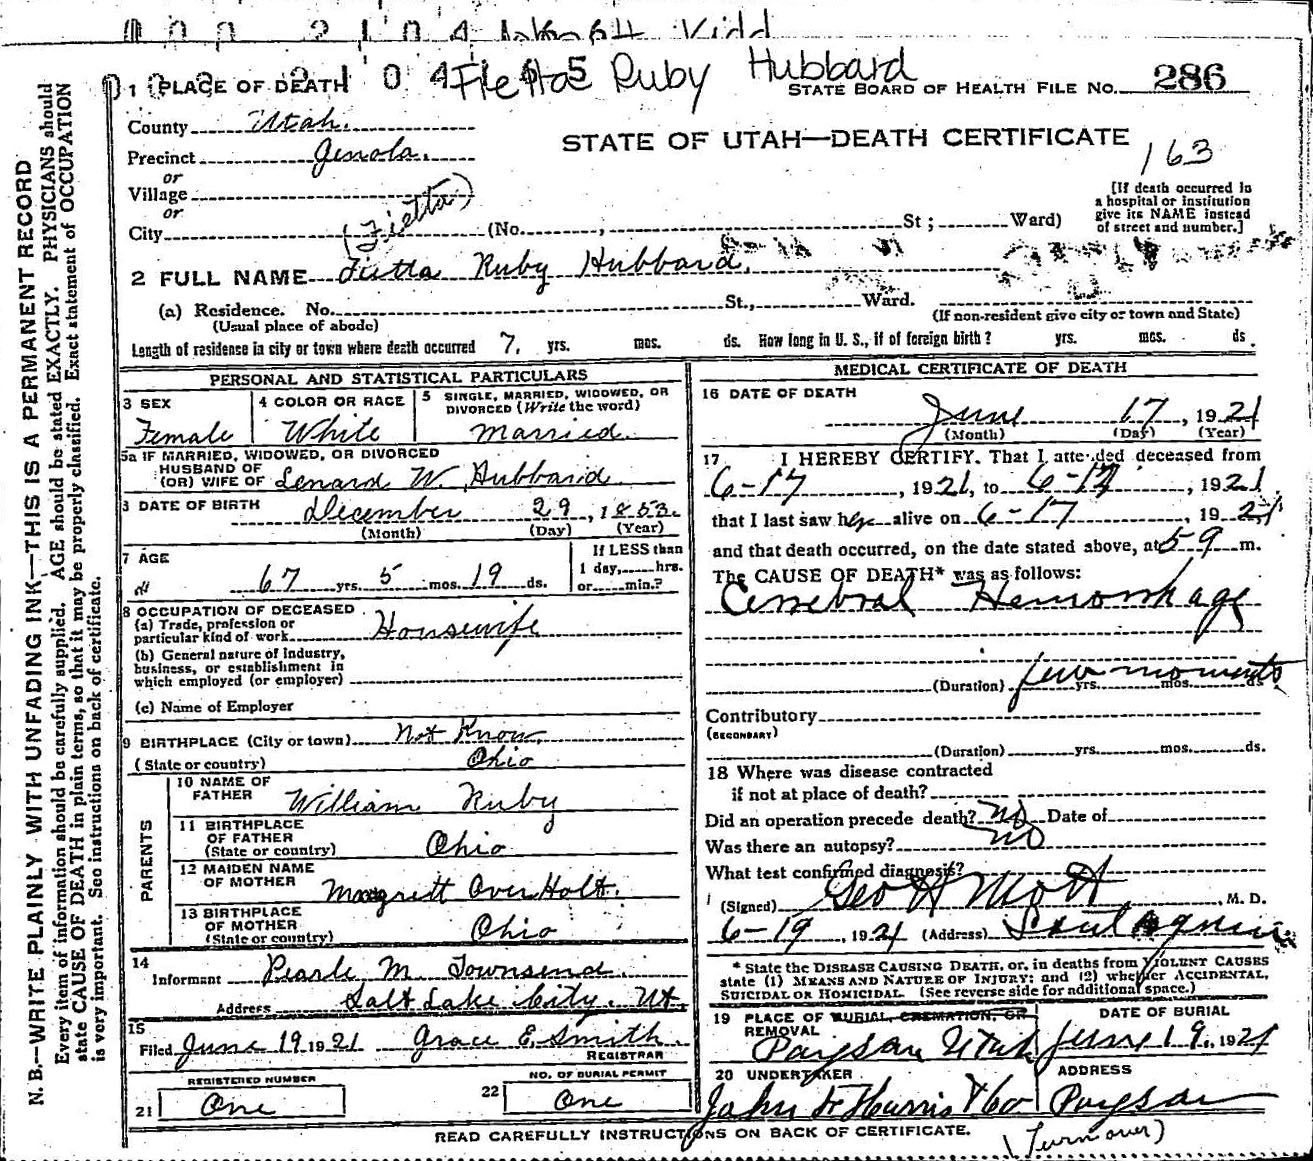 Ruby Hubbard
1 PLACE OF DEATH
STATE BOARD OF HEALTH FILE NO. 286
County Utah.
STATE OF UTAH—DEATH CERTIFICATE
163
Precinct Genola.
or
Village
or
City (Fietta) (No. , St; Ward)
[If death occurred in
a hospital or institution
give its NAME instead
of street and number.]
2 FULL NAME Fietta Ruby Hubbard.
(a) Residence. No. St., Ward.
(Usual place of abode)
(If non-resident give city or town and State)
Length of residence in city or town where death occurred 7. yrs. mos. ds. How long in U. S., if of foreign birth? yrs. mos. ds.
PERSONAL AND STATISTICAL PARTICULARS
3 SEX
Female
4 COLOR OR RACE
White
5 SINGLE, MARRIED, WIDOWED, OR
DIVORCED (Write the word)
Married.
5a IF MARRIED, WIDOWED, OR DIVORCED
HUSBAND OF
(OR) WIFE OF Lenard W. Hubbard
3 DATE OF BIRTH December 29, 1853.
(Month) (Day) (Year)
7 AGE
67 yrs. 5 mos. 19 ds.
If LESS than
1 day, hrs.
or min.?
8 OCCUPATION OF DECEASED
(a) Trade, profession or
particular kind of work Housewife
(b) General nature of Industry,
business, or establishment in
which employed (or employer)
(c) Name of Employer
9 BIRTHPLACE (City or town) Not Know.
(State or country) Ohio
PARENTS
10 NAME OF
FATHER William Ruby
11 BIRTHPLACE
OF FATHER
(State or country) Ohio
12 MAIDEN NAME
OF MOTHER Margrett Over Holt.
13 BIRTHPLACE
OF MOTHER
(State or country) Ohio
14
Informant Pearle M. Townsend.
Address Salt Lake City. Ut.
15
Filed June 19 1921 Grace E. Smith.
REGISTRAR
REGISTERED NUMBER
21 One
NO. OF BURIAL PERMIT
22 One
MEDICAL CERTIFICATE OF DEATH
16 DATE OF DEATH
June 17, 1921
(Month) (Day) (Year)
17 I HEREBY CERTIFY. That I attended deceased from
6-17, 1921, to 6-17, 1921.
that I last saw her alive on 6-17, 1921
and that death occurred, on the date stated above, at 5 9 m.
The CAUSE OF DEATH* was as follows:
Cerrebral Hemorrhage
(Duration) few moments yrs. mos. ds
Contributory
(SECONDARY)
(Duration) yrs. mos. ds.
18 Where was disease contracted
if not at place of death?
Did an operation precede death? No Date of
Was there an autopsy? No
What test confirmed diagnosis?
(Signed) Geo H Mott, M. D.
6-19, 1921 (Address) Santaquin
* State the DISEASE CAUSING DEATH, or, in deaths from VIOLENT CAUSES
state (1) MEANS AND NATURE OF INJURY; and (2) whether ACCIDENTAL,
SUICIDAL OR HOMICIDAL. (See reverse side for additional space.)
19 PLACE OF BURIAL, CREMATION, OR
REMOVAL
Payson Utah
DATE OF BURIAL
June 19., 1921
20 UNDERTAKER
ADDRESS
Payson
READ CAREFULLY INSTRUCTIONS ON BACK OF CERTIFICATE.
(Turn over)
N. B.—WRITE PLAINLY WITH UNFADING INK,—THIS IS A PERMANENT RECORD
Every item of information should be carefully supplied. AGE should be stated EXACTLY. PHYSICIANS should
state CAUSE OF DEATH in plain terms, so that it may be properly classified. Exact statement of OCCUPATION
is very important. See instructions on back of certificate.